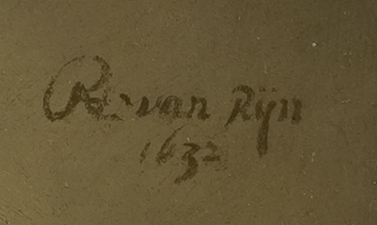 RHL van Rijn
1632